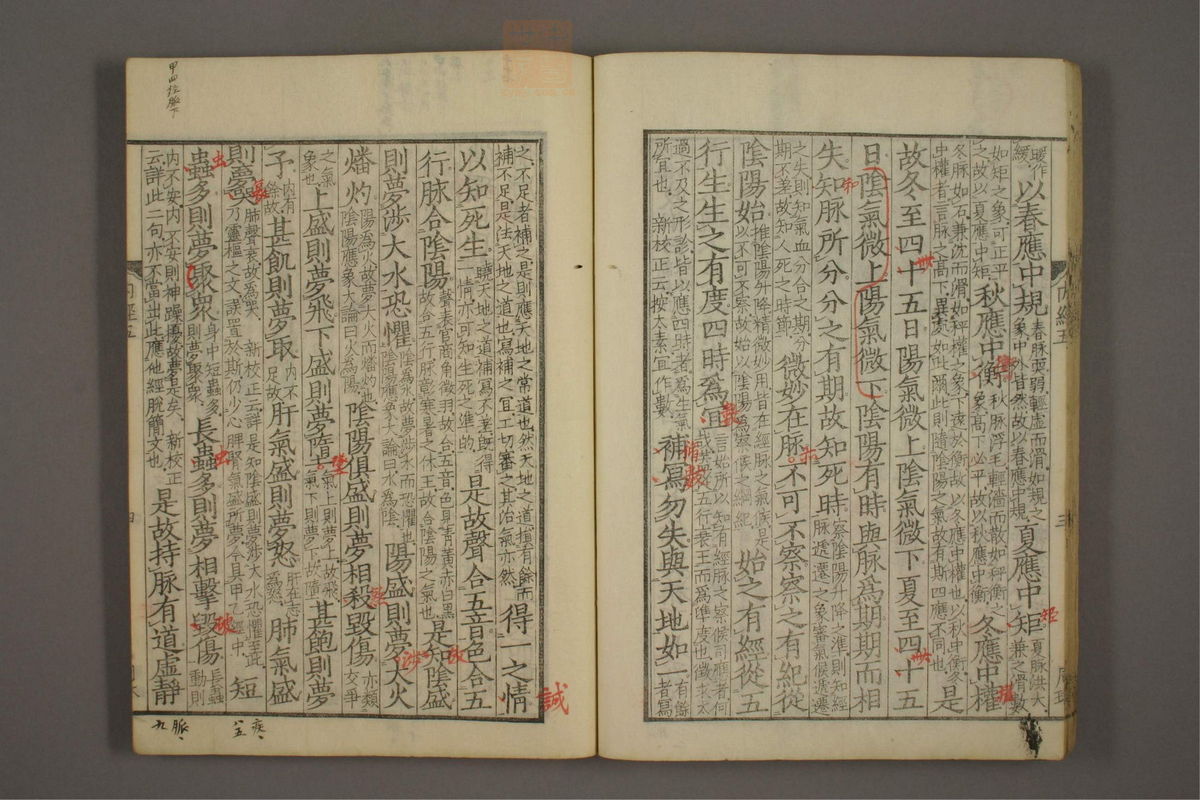 暖作
緩
以春應中規
春脉耎弱輕虛而滑如規之
象中外皆然故以春應中規
夏應中矩
夏脉洪大
兼之滑數
如矩之象可正平
之故以夏應中矩
秋應中衡
秋脉浮毛輕濇而散如秤衡之
象高下必平故以秋應中衡
冬應中權
冬脉如石兼沈而滑如秤權之象下遠於衡故以冬應中權也以秋中衡冬
中權者言脉之高下異處如此爾此則隨陰陽之氣故有斯四應不同也
是
故冬至四十五日陽氣微上陰氣微下夏至四十五
日陰氣微上陽氣微下陰陽有時與脉爲期期而相
失知脉所分分之有期故知死時
察陰陽升降之准則知經
脉遞遷之象審氣候遞遷
之失則知氣血分合之期分
期不差故知人死之時節
微妙在脉不可不察察之有紀從
陰陽始
推陰陽升降精微妙用皆在經脉之氣候是
以不可不察故始以陰陽爲察候之綱紀
始之有經從五
行生生之有度四時爲宜
言始所以知有經脉之察候司應者
五行衰王而爲準度也徵求太
過不及之形診皆以應四時者爲生氣
所宜也 新校正云按太素宜作數
補寫勿失與天地如一
有餘
者寫
之不足者補之是則應天地之常道也然天地之道損有餘而
補不足是法天地之道也寫補之宜工切審之其治氣亦然
得一之情
以知死生
曉天地之道補寫不差旣得一
情亦可知生死之準的
是故聲合五音色合五
行脉合陰陽
聲表宮商角徵羽故合五音色見青黃赤白黑
故合五行脉彰寒暑之休王故合陰陽之氣也
是知陰盛
則夢涉大水恐懼
陰爲水故夢涉水而恐懼也
陰陽應象大論曰水爲陰
陽盛則夢大火
燔灼
陽爲火故夢大火而燔灼也
陰陽應象大論曰火爲陽
陰陽俱盛則夢相殺毀傷
亦類
交爭
之氣
象也
上盛則夢飛下盛則夢墮
氣上則夢上故飛
氣下則夢下故墮
甚飽則夢
予
內有
餘故
甚飢則夢取
內不
足故
肝氣盛則夢怒
肝在志
爲怒
肺氣盛
則夢哭
肺聲哀故爲哭 新校正云詳是知陰盛則夢涉大水恐懼至此
乃靈樞之文誤置於斯仍少心脾腎氣盛所夢今具甲乙經中
短
蟲多則夢聚衆
身中短蟲多
則夢聚衆
長蟲多則夢相擊毀傷
長蟲
動則
內不安內不安則神躁擾故夢是矣 新校正
云詳此二句亦不當出此應他經脫簡文也
是故持脉有道虛靜
內經五
四
三
誠